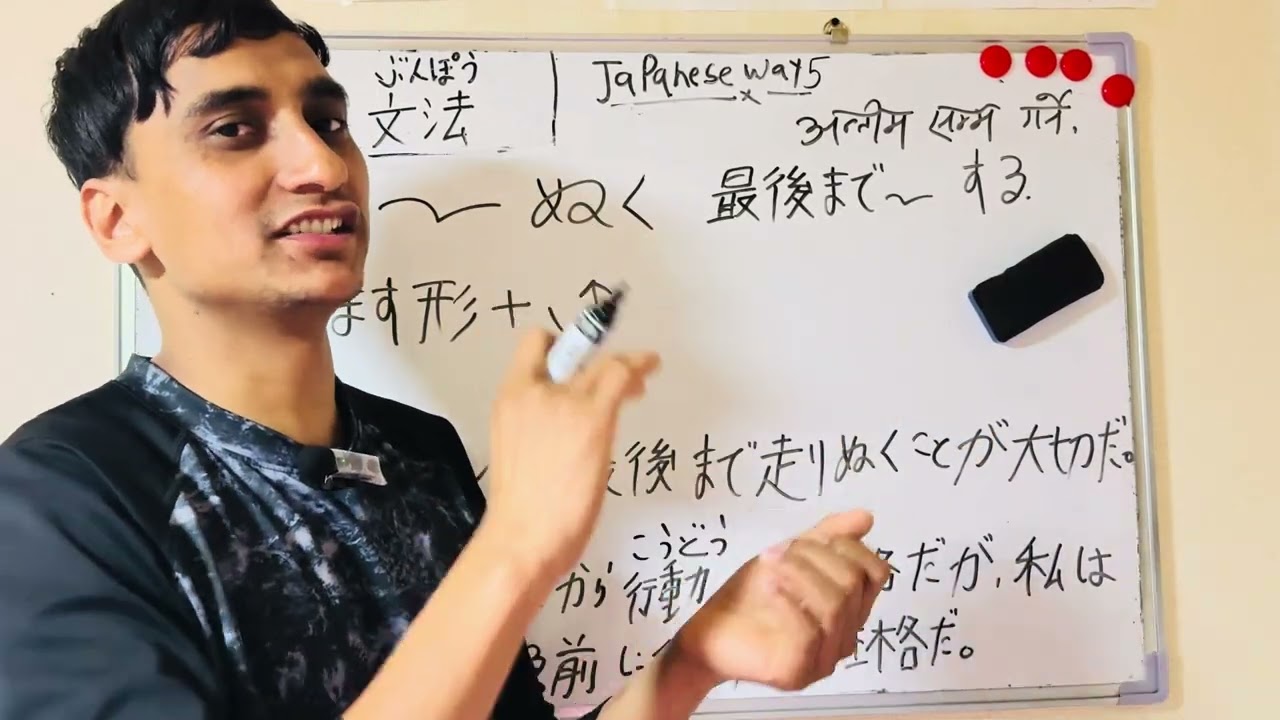 ぶんぽう
文法
Japanese ways
अन्तीम सम्म गर्ने.
〜ぬく 最後まで〜する.
ます形+
後まで走りぬくことが大切だ。
こうどう
から行動 格だが、私は
前に 性格だ。